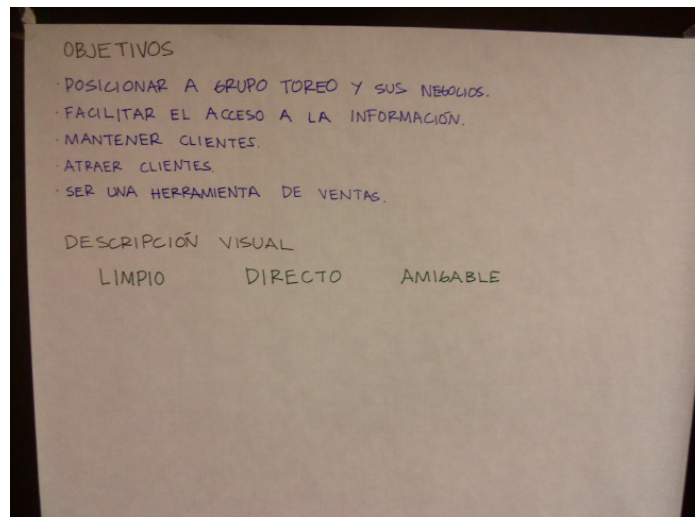 OBJETIVOS
· POSICIONAR A GRUPO TOREO Y SUS NEGOCIOS.
· FACILITAR EL ACCESO A LA INFORMACIÓN.
· MANTENER CLIENTES.
· ATRAER CLIENTES.
· SER UNA HERRAMIENTA DE VENTAS.
DESCRIPCIÓN VISUAL
LIMPIO DIRECTO AMIGABLE